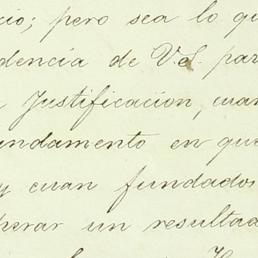 cio; pero sea lo qu
dencia de V.S. par
Justificacion, cuan
undamento en que
y cuan fundados
perar un resultad